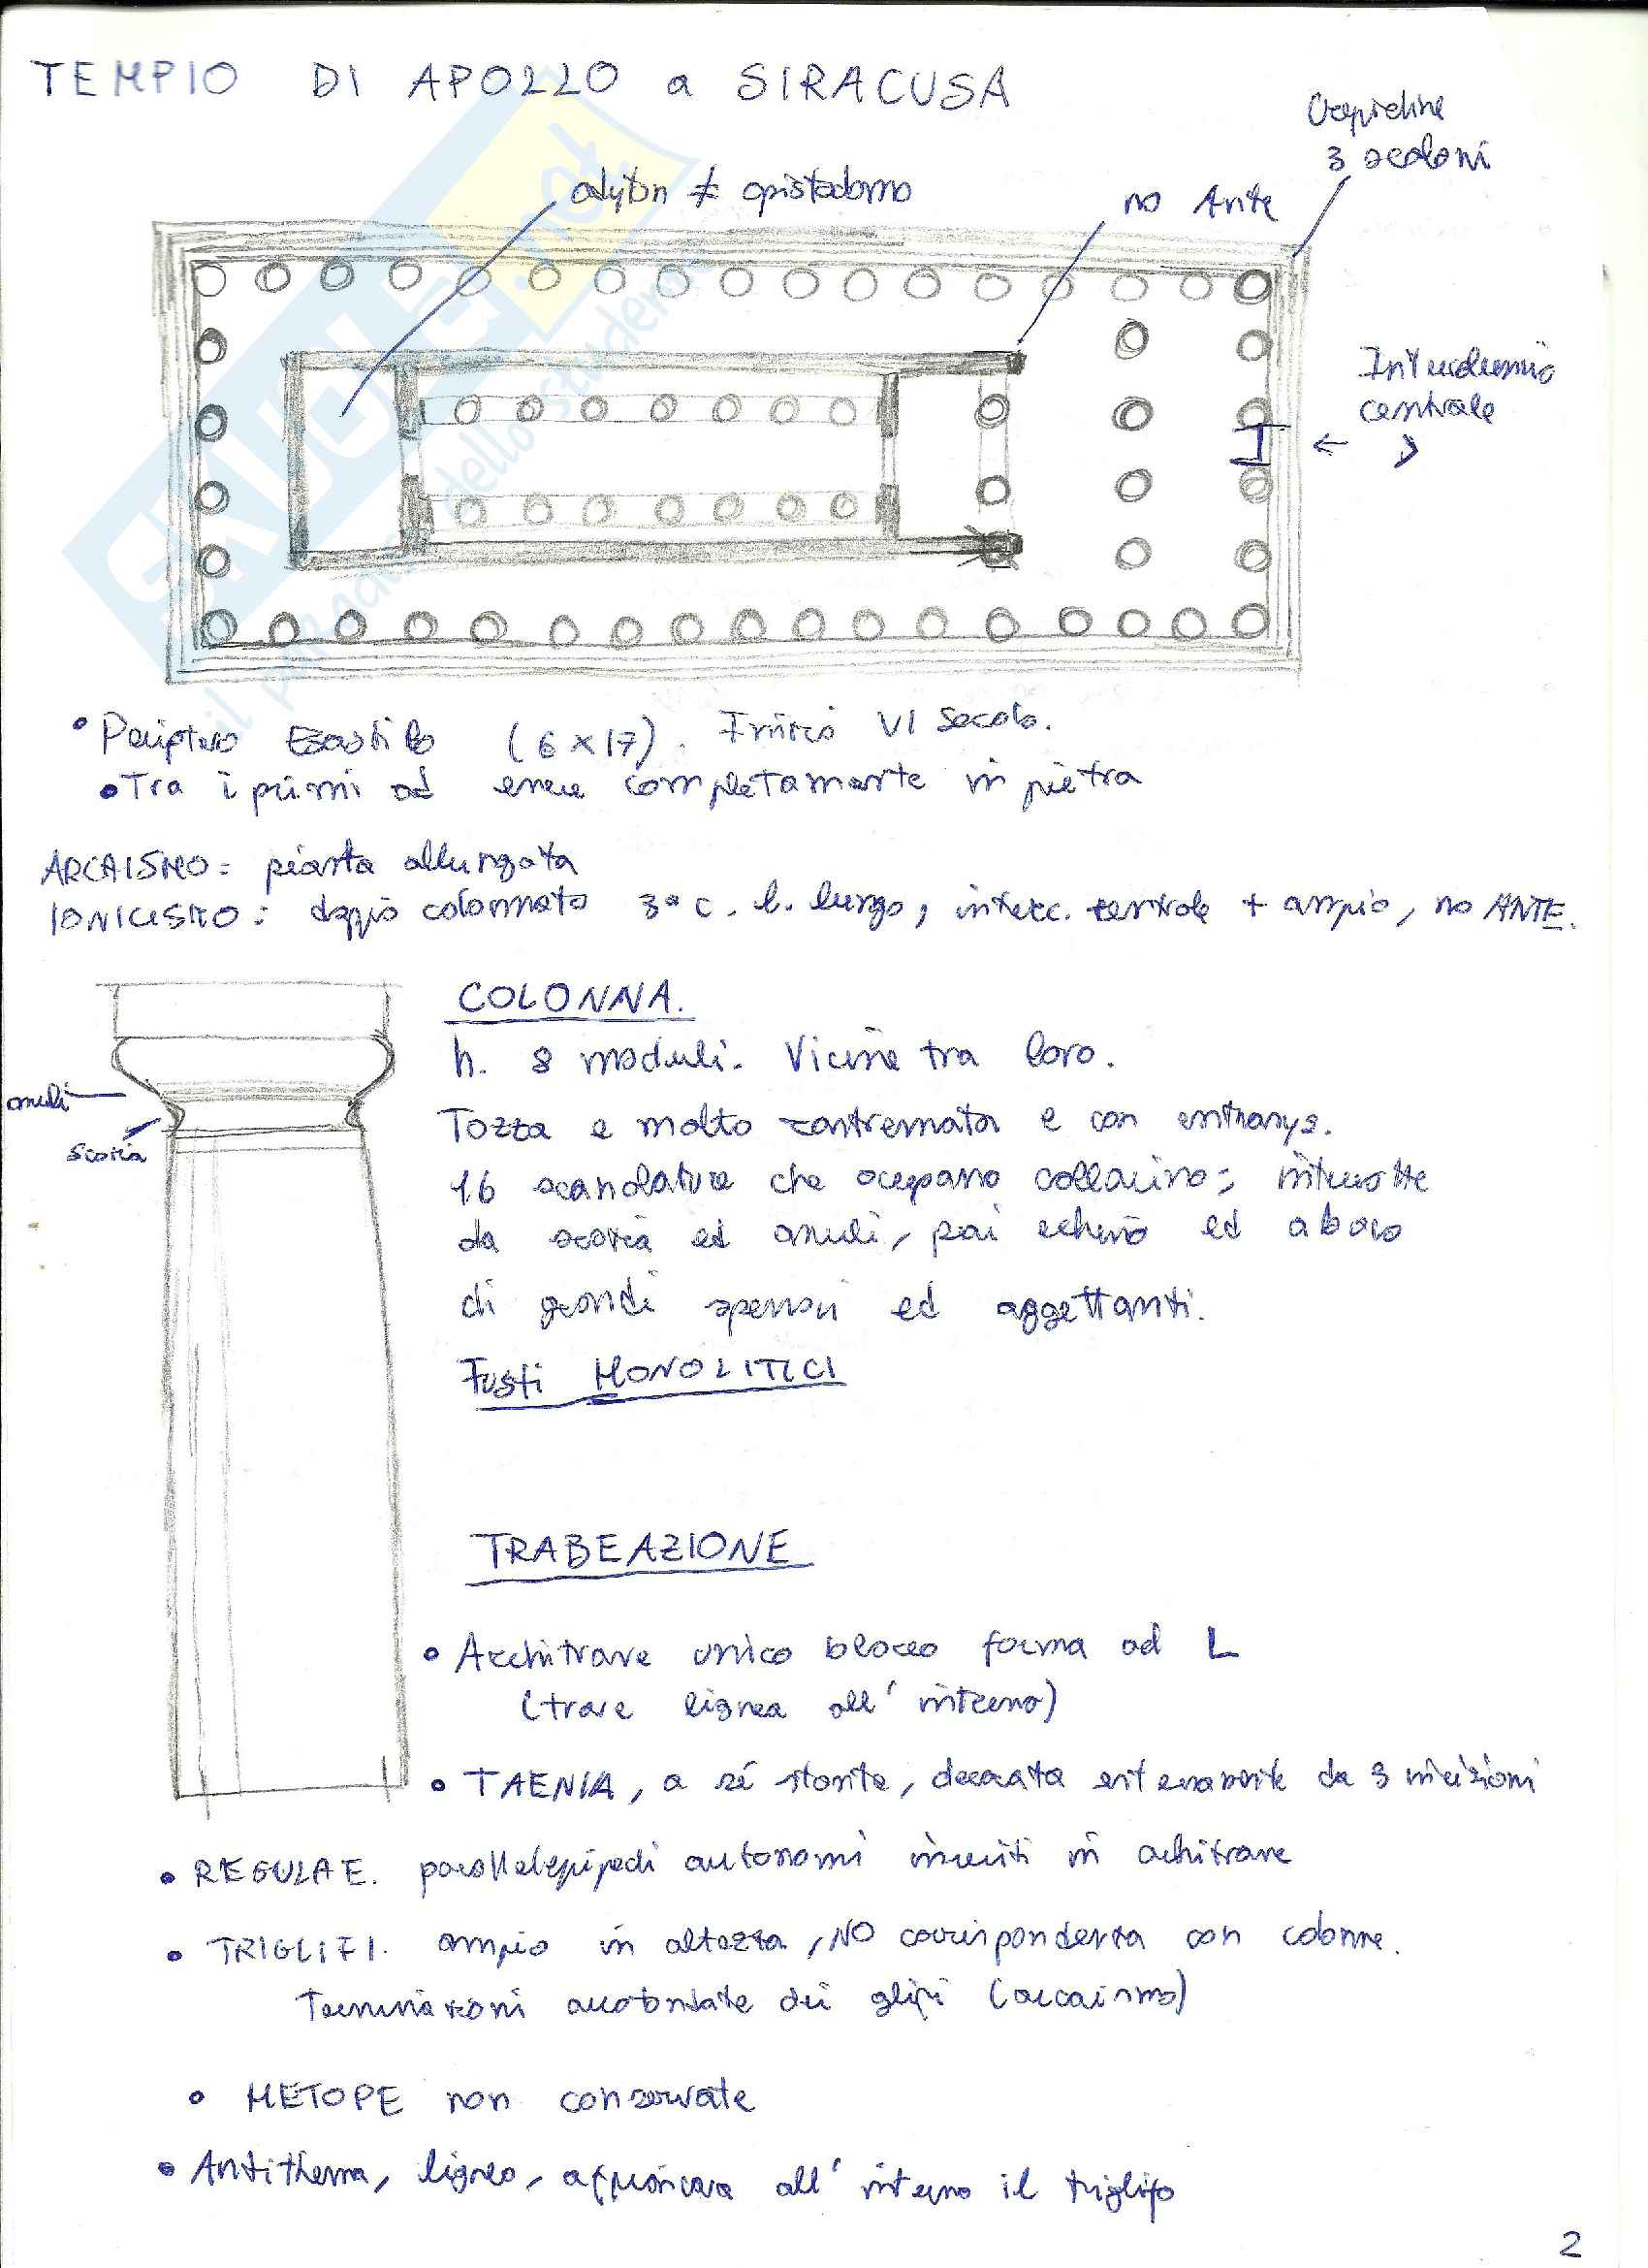 TEMPIO DI APOLLO a SIRACUSA
Crepidine
3 scaloni
adyton ≠ opistodomo
no Ante
Intercolumnio
centrale
• Periptero Esastilo (6 x 17). Inizio VI secolo.
• Tra i primi ad essere completamente in pietra
ARCAISMO: pianta allungata
IONICISMO: doppio colonnato 3° c. l. lungo, interc. centrale + ampio, no ANTE.
COLONNA.
h. 8 moduli. Vicine tra loro.
anuli
Tozza e molto rastremata e con entharys.
scozia
16 scanalature che occupano collarino; interrotte
da scozia ed anuli, poi echino ed abaco
di grandi spessori ed aggettanti.
Fusti MONOLITICI
TRABEAZIONE
• Architrave unico blocco forma ad L
(trave lignea all'interno)
• TAENIA, a sé stante, decorata esternamente da 3 incisioni
• REGULAE. parallelepipedi autonomi inseriti in achitrave
• TRIGLIFI. ampio in altezza, NO corrispondenza con colonne.
Terminazioni arrotondate dei glifi (arcaismo)
• METOPE non conservate
• Antithema, ligneo, affiancava all'interno il triglifo
2
SKUOLA.net
il paradiso dello studente